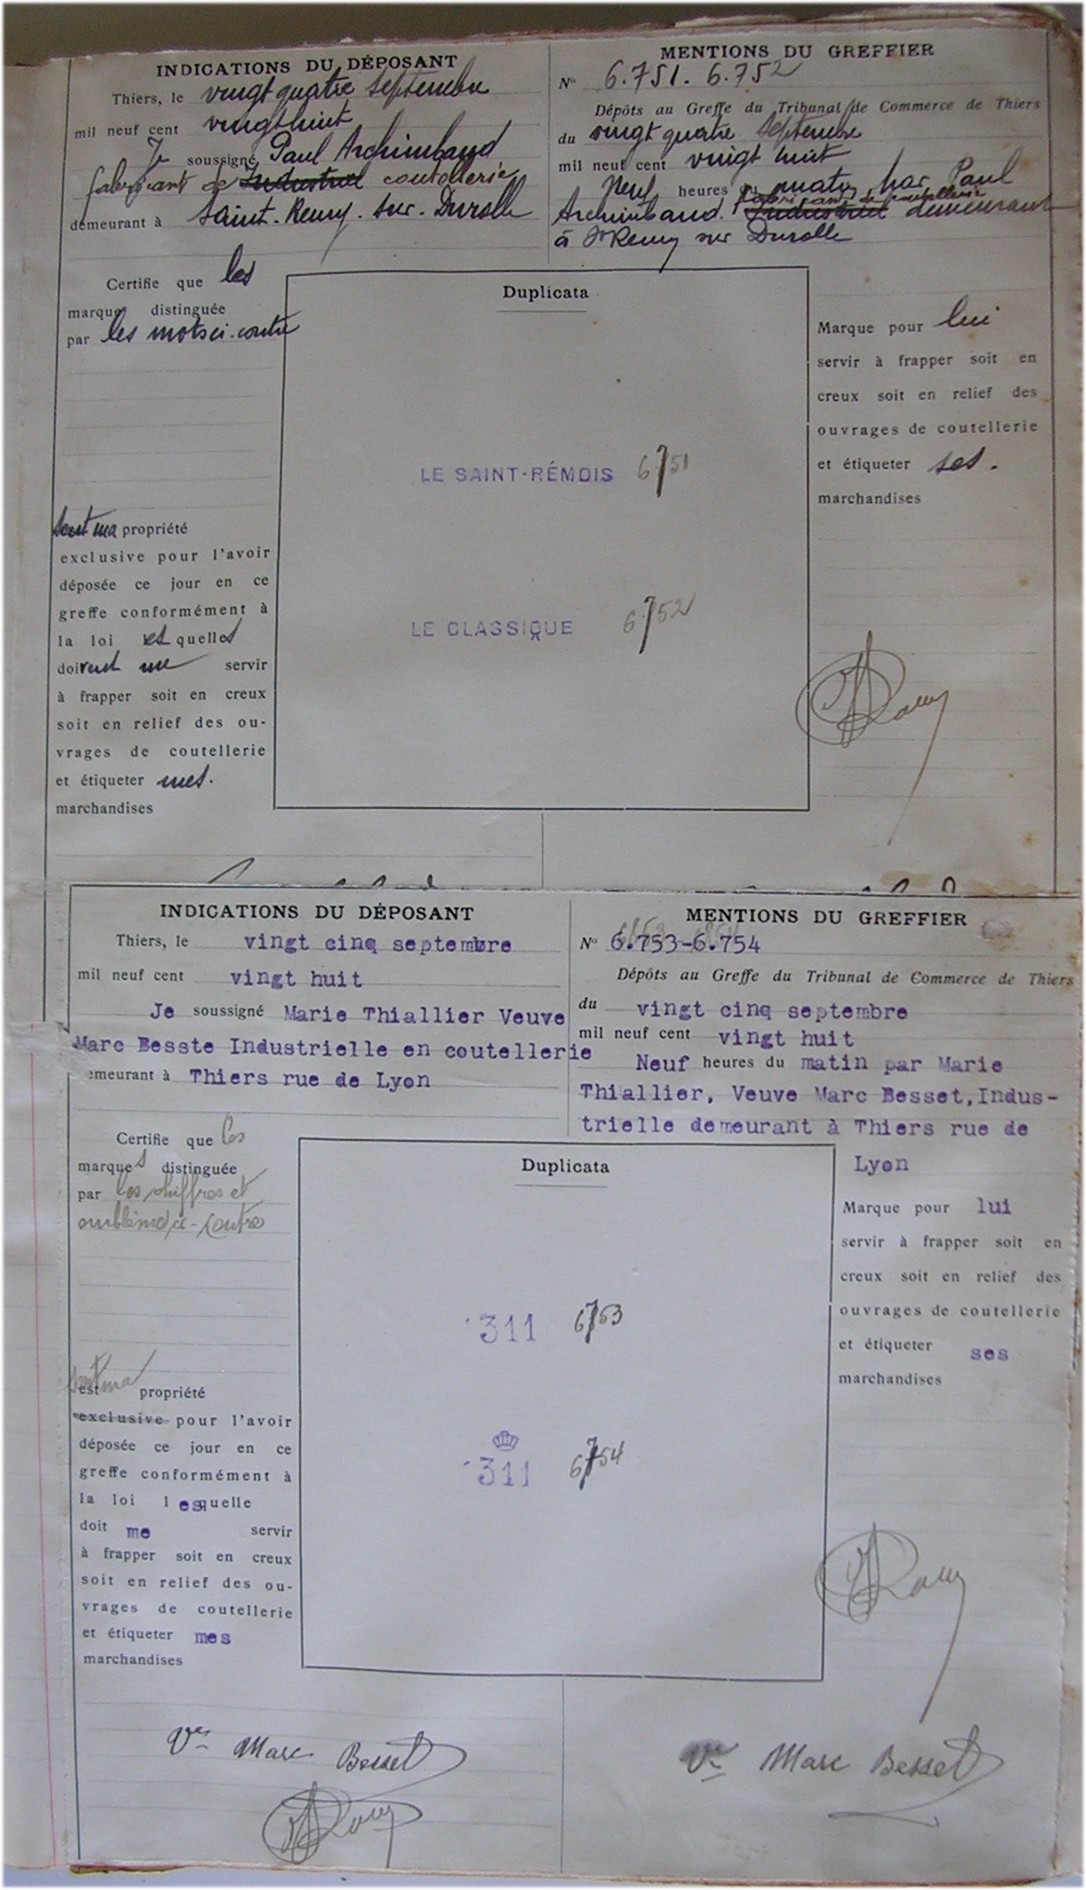 INDICATIONS DU DÉPOSANT
Thiers, le vingt quatre septembre
mil neuf cent vingt huit
Je soussigné Paul Archimbaud
fabricant de Industriel coutellerie
demeurant à Saint-Remy-sur-Durolle
Certifie que les
marque distinguée
par les mots ci-contre
sont ma propriété
exclusive pour l'avoir
déposée ce jour en ce
greffe conformément à
la loi lesquelles
doivent me servir
à frapper soit en creux
soit en relief des ou-
vrages de coutellerie
et étiqueter mes.
marchandises
Duplicata
LE SAINT-RÉMOIS 6751
LE CLASSIQUE 6752
MENTIONS DU GREFFIER
N° 6.751. 6.752
Dépôts au Greffe du Tribunal de Commerce de Thiers
du vingt quatre septembre
mil neuf cent vingt huit
Neuf heures du matin par Paul
fabricant de coutellerie
Archimbaud. Industriel demeurant
à St Remy sur Durolle
Marque pour lui
servir à frapper soit en
creux soit en relief des
ouvrages de coutellerie
et étiqueter ses.
marchandises
INDICATIONS DU DÉPOSANT
Thiers, le vingt cinq septembre
mil neuf cent vingt huit
Je soussigné Marie Thiallier Veuve
Marc Besste Industrielle en coutellerie
emeurant à Thiers rue de Lyon
Certifie que les
marques distinguée
par les chiffres et
emblème ci-contre
est sont ma propriété
exclusive pour l'avoir
déposée ce jour en ce
greffe conformément à
la loi lesquelle
doit me servir
à frapper soit en creux
soit en relief des ou-
vrages de coutellerie
et étiqueter mes
marchandises
Duplicata
311 6753
311 6754
MENTIONS DU GREFFIER
N° 6.753-6.754
Dépôts au Greffe du Tribunal de Commerce de Thiers
du vingt cinq septembre
mil neuf cent vingt huit
Neuf heures du matin par Marie
Thiallier, Veuve Marc Besset,Indus-
trielle demeurant à Thiers rue de
Lyon
Marque pour lui
servir à frapper soit en
creux soit en relief des
ouvrages de coutellerie
et étiqueter ses
marchandises
Ve Marc Besset
Ve Marc Besset